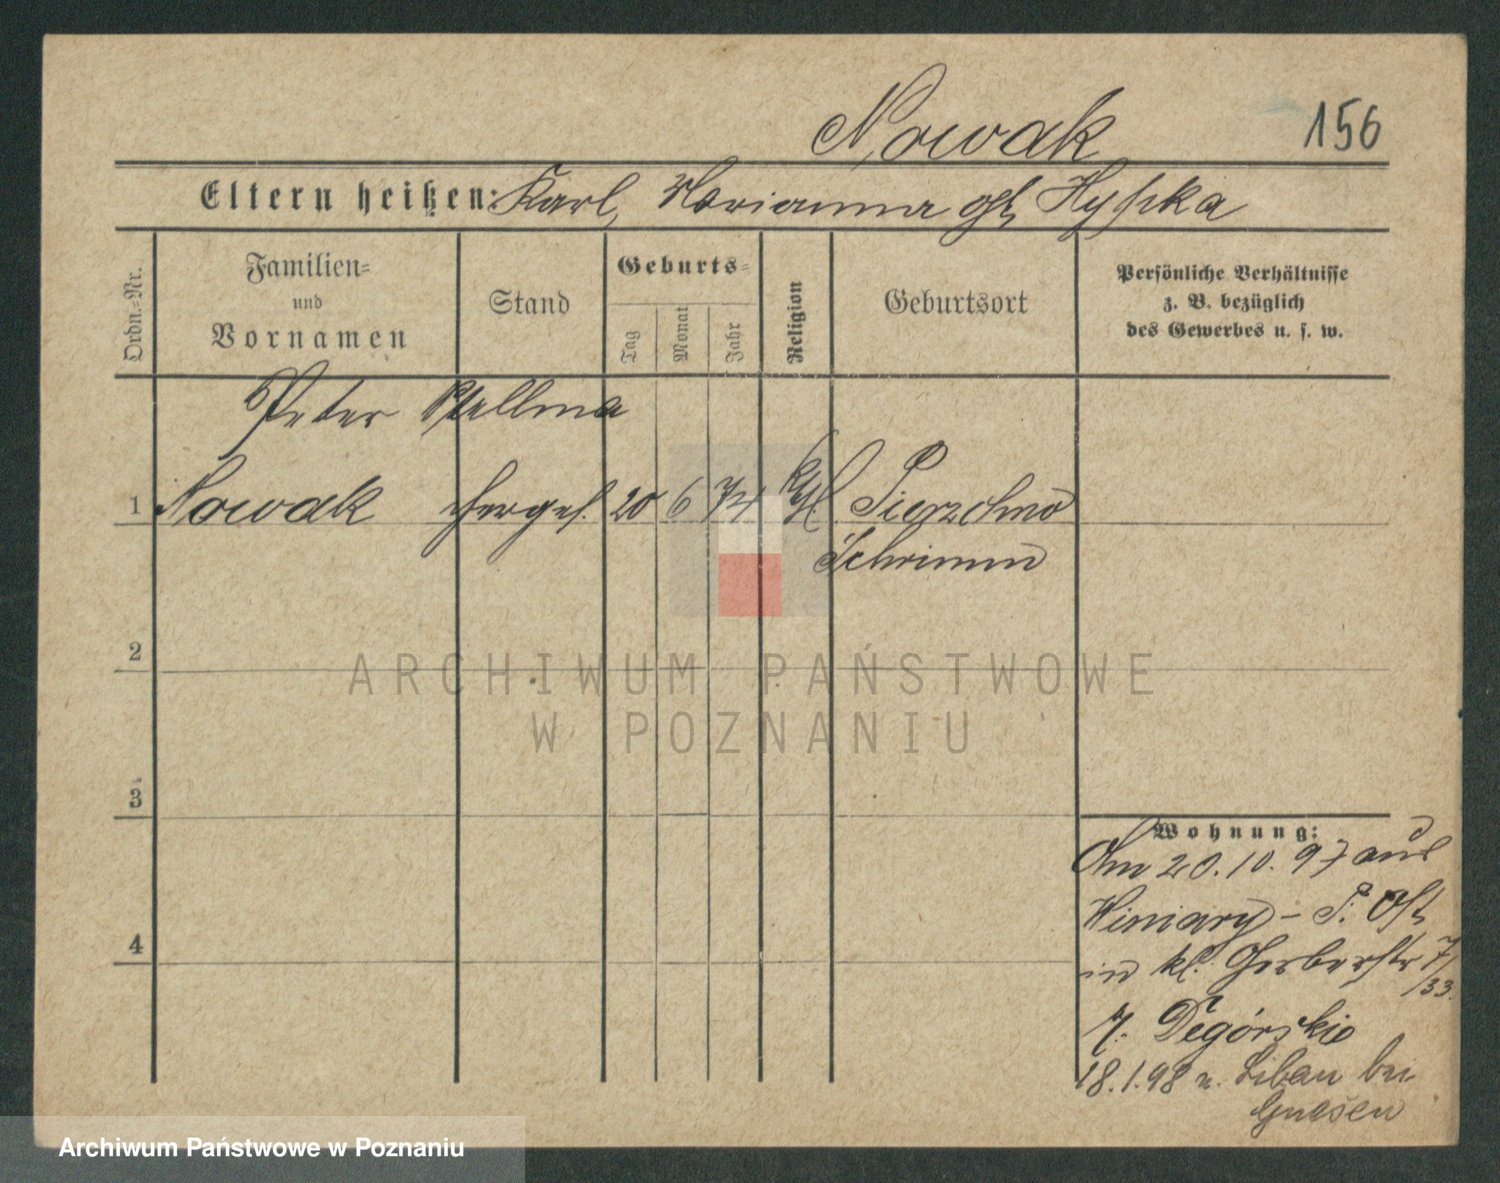 Nowak 156
Eltern heißen: Karl, Marianna geb. Hypka
Ordn.-Nr.
Familien-
und
Vornamen
Stand
Geburts-
Tag
Monat
Jahr
Religion
Geburtsort
Persönliche Verhältnisse
z. B. bezüglich
des Gewerbes u. s. w.
Peter Stellma
1 Nowak chergs. 20 6 74 kth Pierzchno
Schrimm
2
ARCHIWUM PAŃSTWOWE
W POZNANIU
3
4
Wohnung:
Am 20.10.97 aus
Winiary - P. Ost
in kl. Gerberstr 7/
/33.
b. Degórski
18.1.98 n. Liban bei
Gnesen
Archiwum Państwowe w Poznaniu